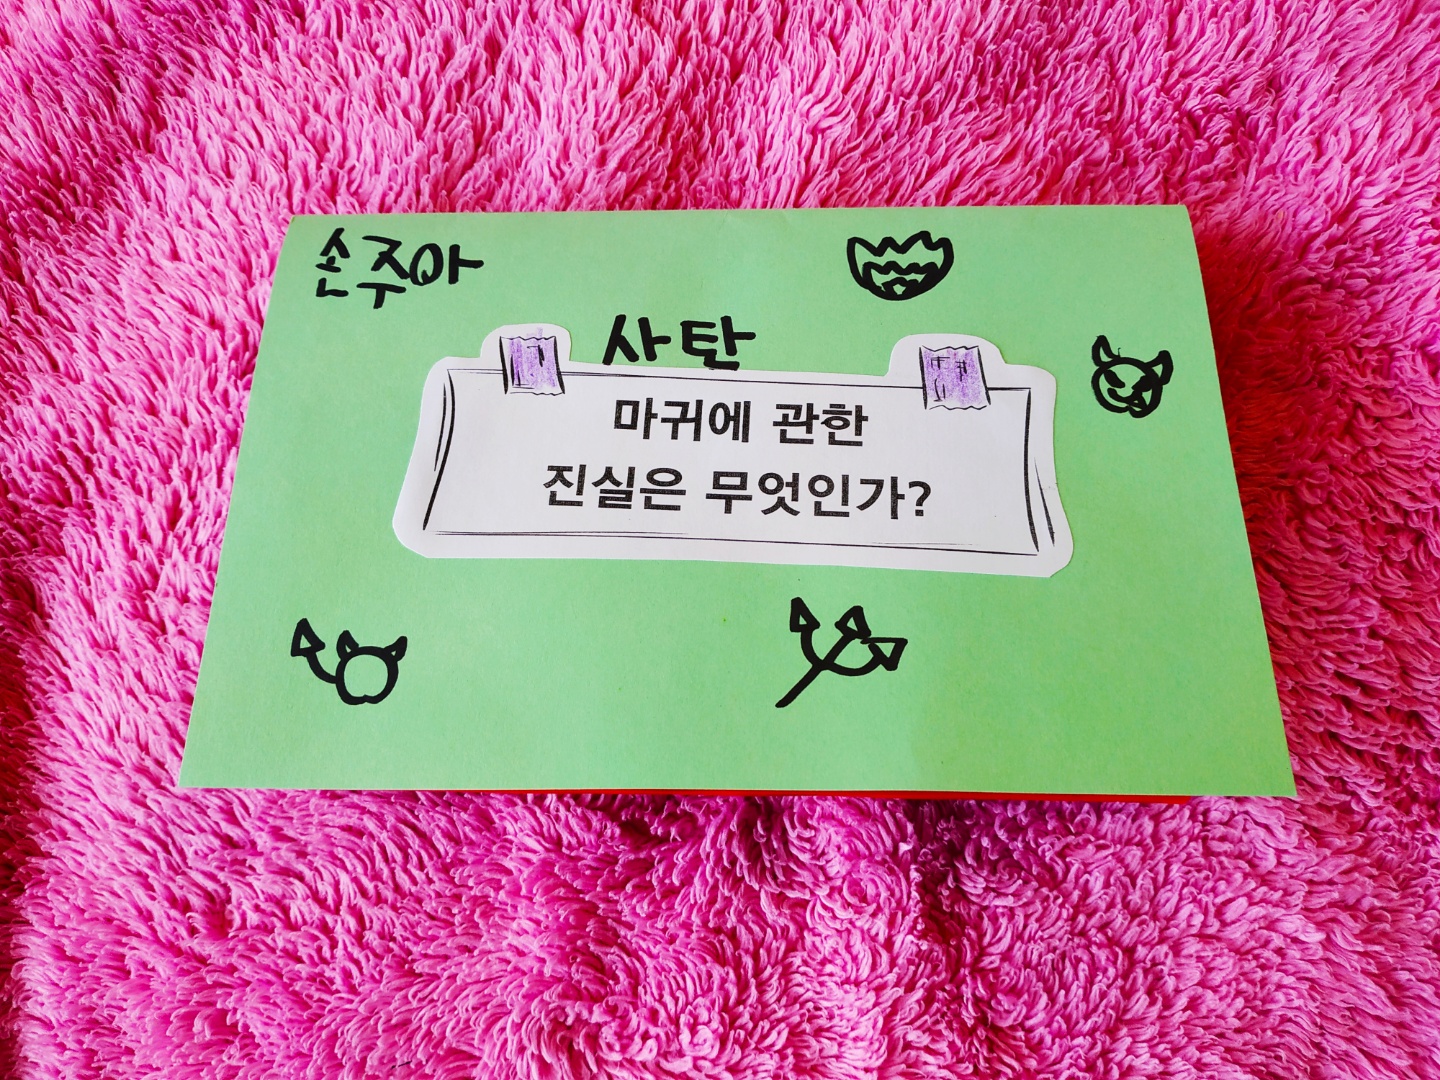 손주아
사탄
마귀에 관한
진실은 무엇인가?